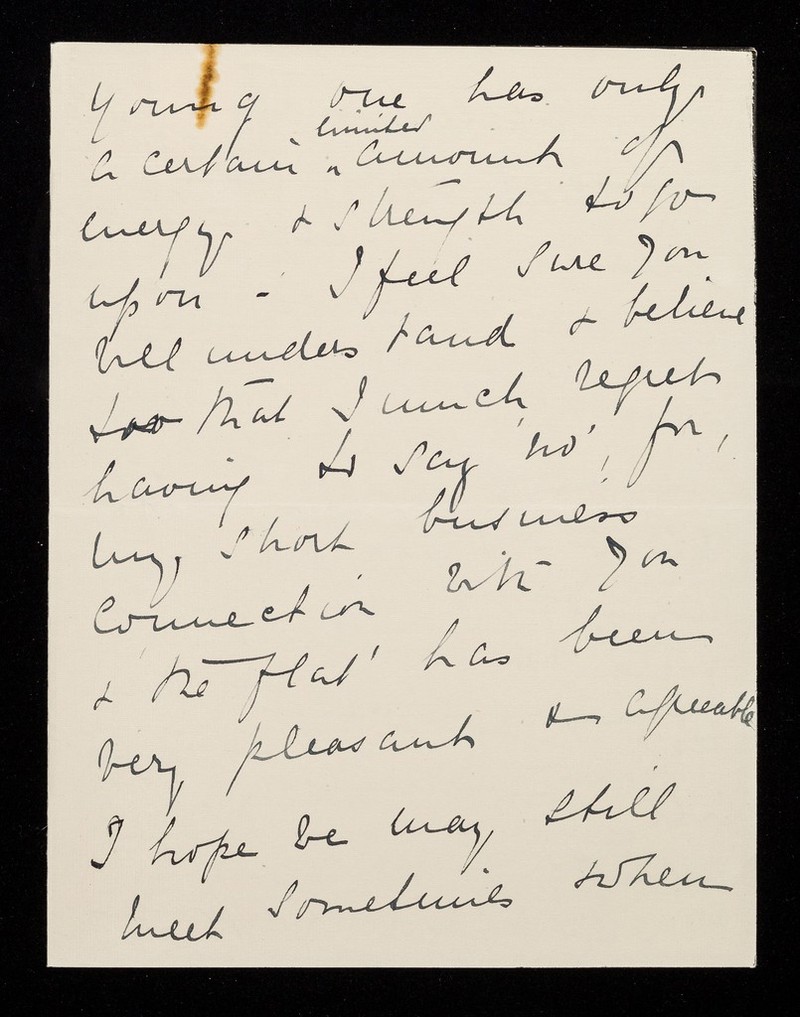 young one has only
a certain limited amount of
energy & strength to go
upon - I feel sure you
will understand & believe
too that I much regret
having to say 'no', for,
my short business
connection with you
& 'the flat' has been
very pleasant & agreeable
I hope we may still
meet sometimes & when